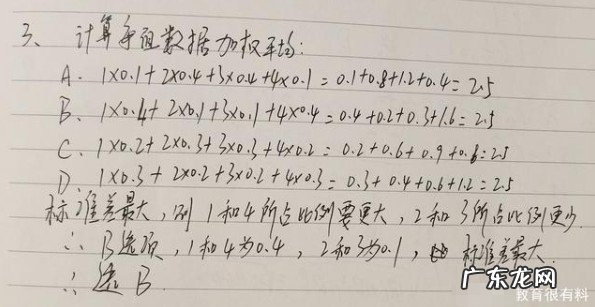 3、计算每组数据加权平均:
A. 1×0.1+2×0.4+3×0.4+4×0.1=0.1+0.8+1.2+0.4=2.5
B. 1×0.4+2×0.1+3×0.1+4×0.4=0.4+0.2+0.3+1.6=2.5
C. 1×0.2+2×0.3+3×0.3+4×0.2=0.2+0.6+0.9+0.8=2.5
D. 1×0.3+2×0.2+3×0.2+4×0.3=0.3+0.4+0.6+1.2=2.5
标准差最大,则1和4所占比例要更大,2和3所占比例更少.
∴B选项,1和4为0.4,2和3为0.1,标准差最大.
∴选B.
广东龙网
教育很有料